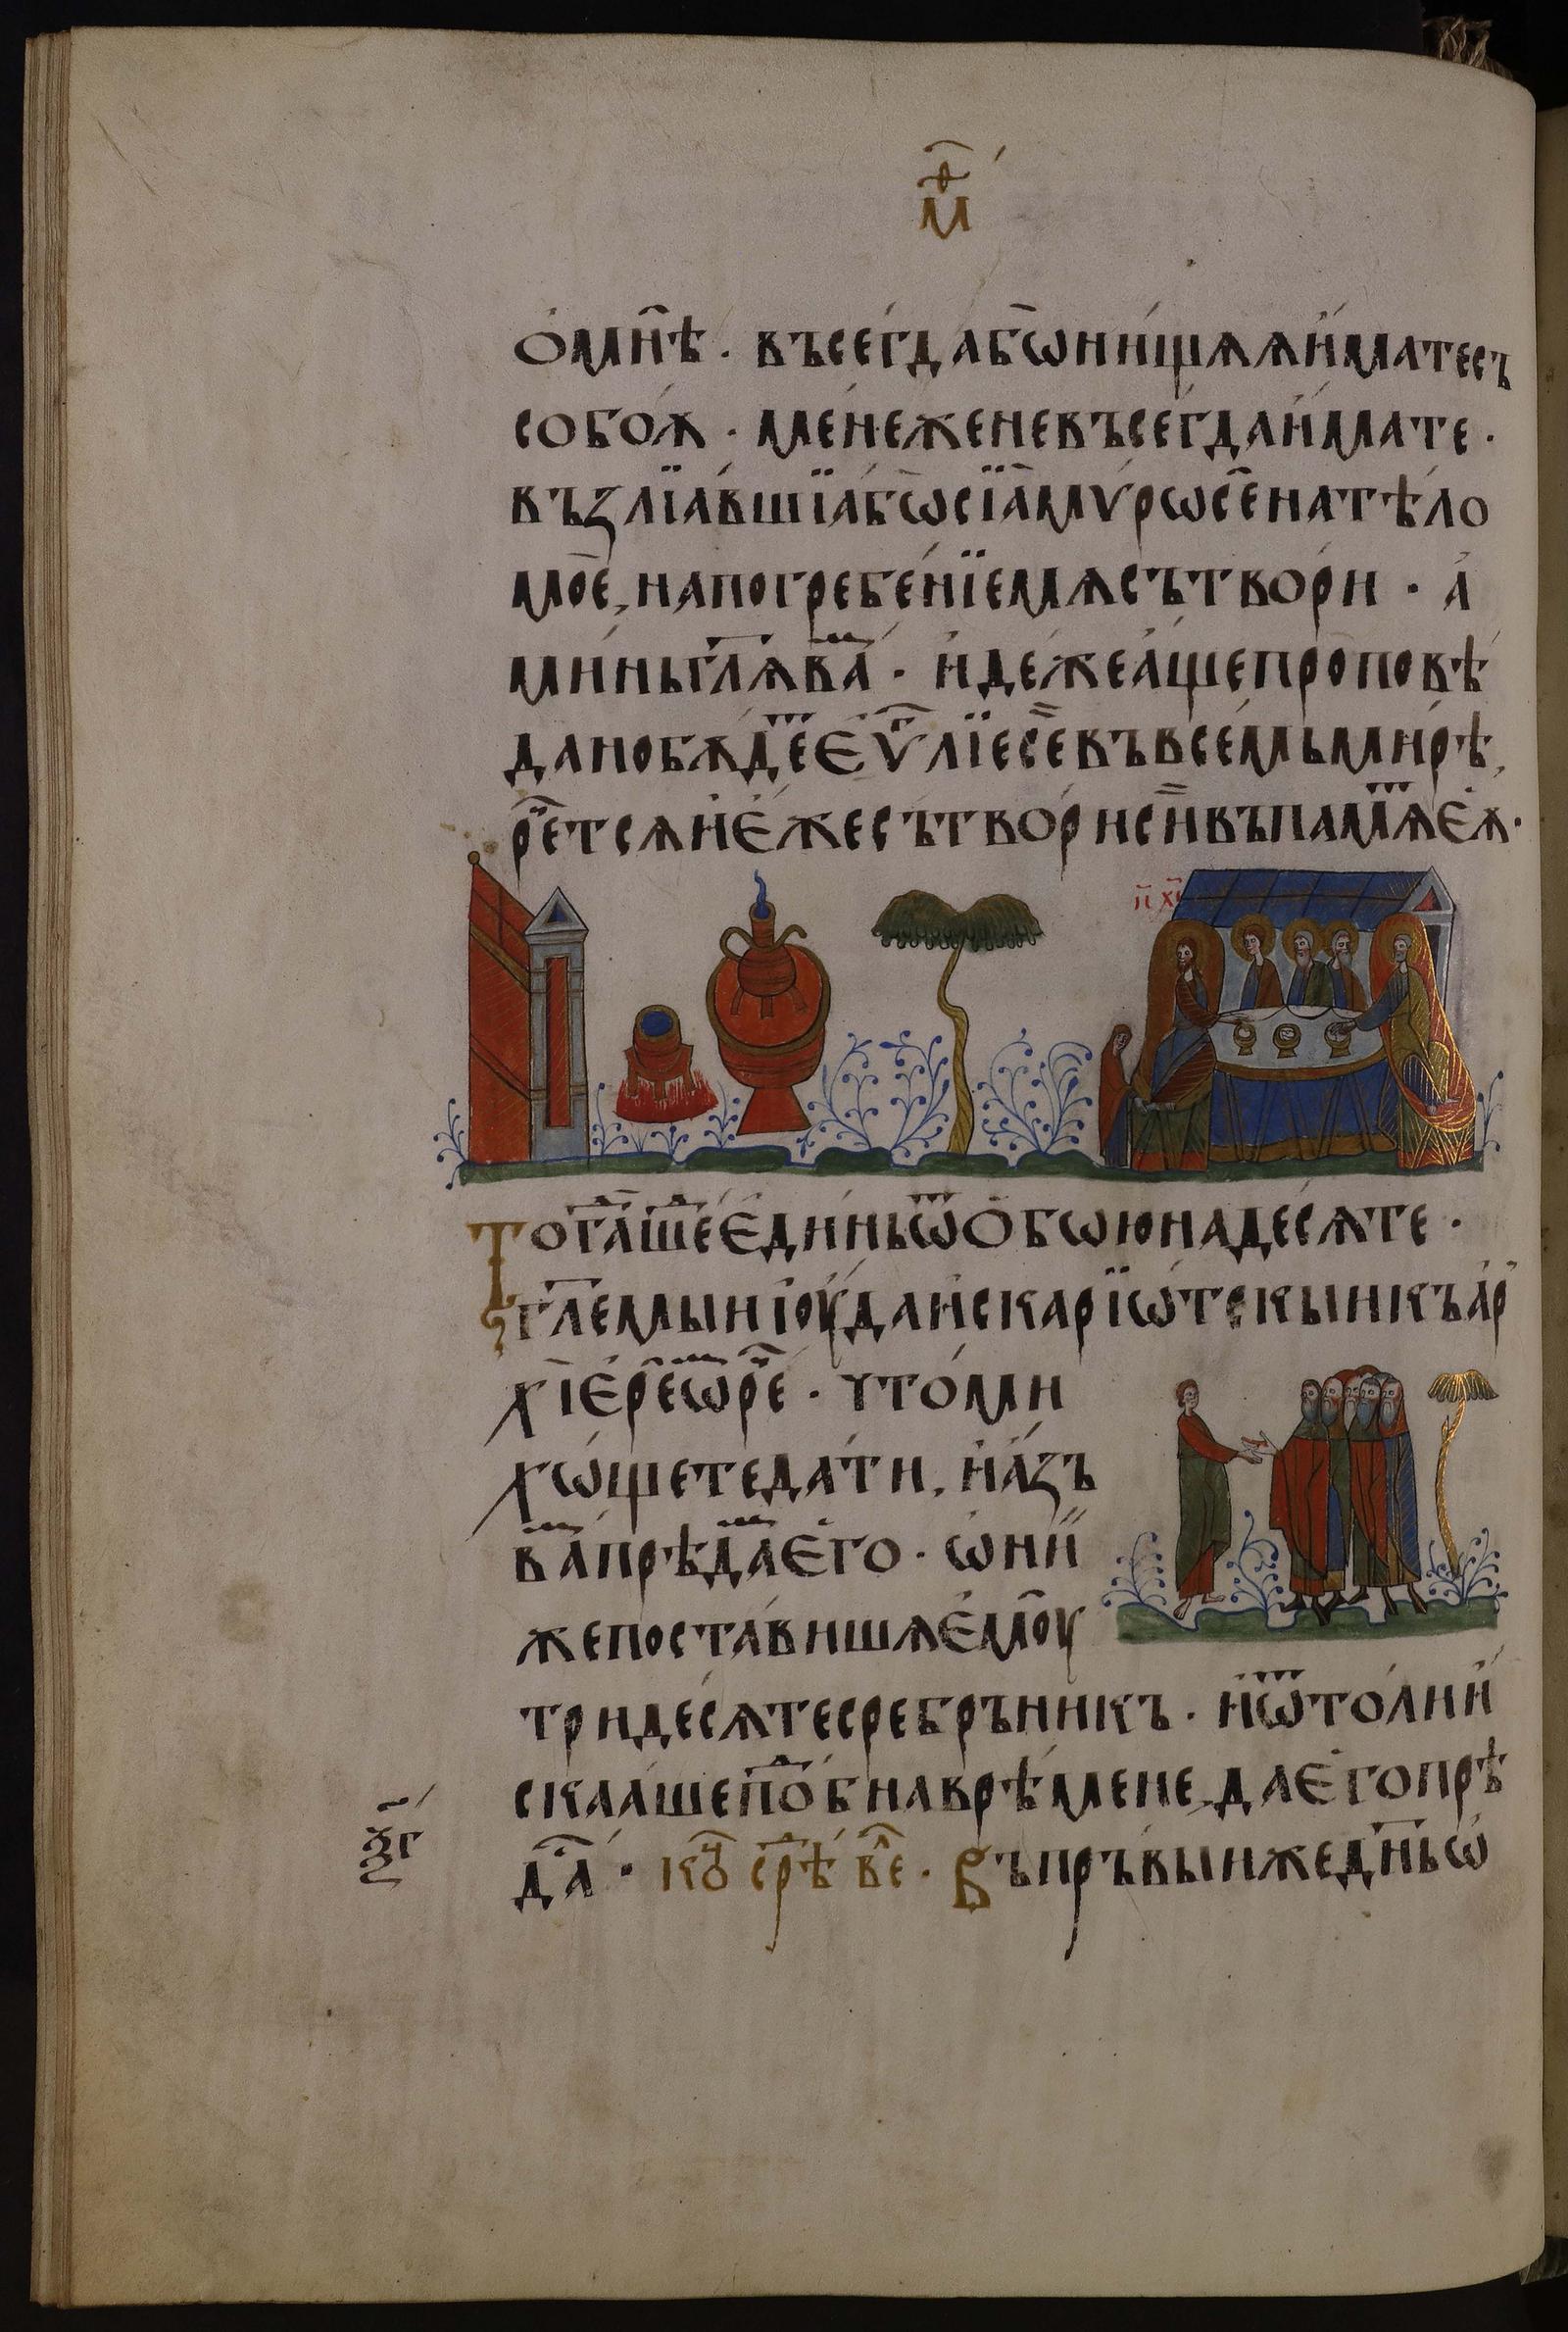 м҃ѳ
ѡ҆мн҄ѣ · въсеѓдабѡ҃ни́щѧѧи҆́матесъ
собо́ѫ · мене́женевъсеѓдаи҆́мате ·
възлїа́вшїабѡ҃сїа҄мѵ́рѡсе҄натѣ́ло
мое҄, напогребе́нїемѧсътво́ри · а҆
ми́ньгл҃ѧва́ · и҆дежеа҆́щепроповѣ́
данобѫ́детеѵ҃лїесе҄въвсемьми́рѣ,
рч҃етсѧи҆є҆́жесътво́рисн҄въпамѧтеѧ ·
іс хс
Тогдашедєди́ньѿѻ҆бѡюнадесѧ́те ·
гл҃емыиі҆оу́даи҆скарїѡ́тскыикъар
хїєре́ѡмрече · что́ми
хѡ́щетеда́ти, и҆а҆́зъ
ва́мпрѣда́мего · ѡ҆ни́
жепоста́вишѧє҆моу
тридесѧ́тесребръникъ · и҆ѿто́лии
скаа́шепод҄обнаврѣ́мене, даєгопрѣ
да́ст · кѡ҃ срѣ́д ве҄ч · Въпръ́выижедн҃ьѡ
ѯ҃г